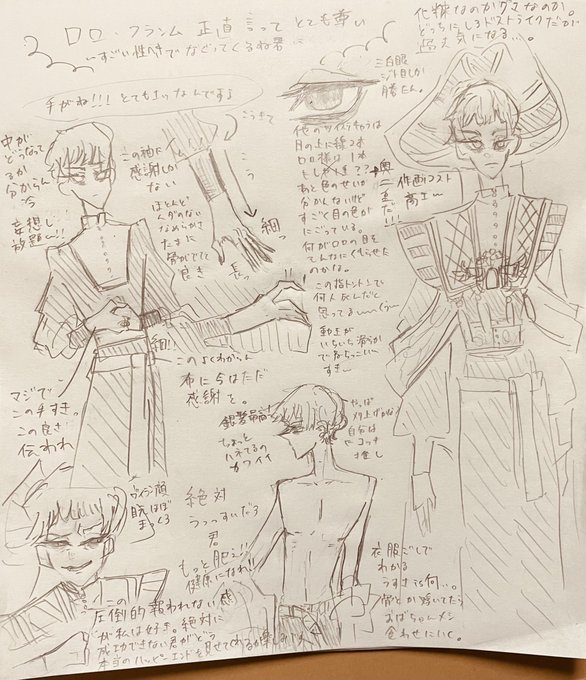 ロロ・フランム 正直言って とても尊い
すごい性ヘキでなぐってくるね君は
手がね!!! とてもエッなんですよ
化粧なのかクマなのか。
どっちにしろドストライクだが
超気になる…。
三白眼
ジト目しか
勝たん。
中が
どうなって
るか
分からん
妄想し
放題〜!!
この袖に
感謝しか
ない
ほとんど
ムダのない
なめらかさ
たまに
骨がでてて
良き
こう
細っ
長っ
他のツイステキャラは
目の上に線2本
ロロ様は1本
→奥二重だ!!!
あと色のせいか
分かんないけど
すごく目の色が
にごっている。
何がロロの目を
そんなにくもらせた
のかな。
作画コスト
高エ〜
この指トントンで
何人死んだと
思ってる〜
動きが
いちいち滑らか
でえちっこい〜
すき〜
細!
このよくわからん
布に今はただ
感謝を。
マジで
この手すき。
この良さ
伝われ
銀髪最高!
ちょっと
ハネてるの
カワイイ
やっぱ
刈り上げかな
自分は
コッチ
推し
ヴィラン顔
絶対
うっっすいだろ
君
もっと肥え!!
健康になれ!!
衣服ごしで
わかる
うすさis何…。
骨とか浮いてたら
おばちゃんメシ
食わせにいく。
この
圧倒的報われない感
が私は好き。絶対に
成功できない君がどう
本当のハッピーエンドを見せてくれるか楽しみ